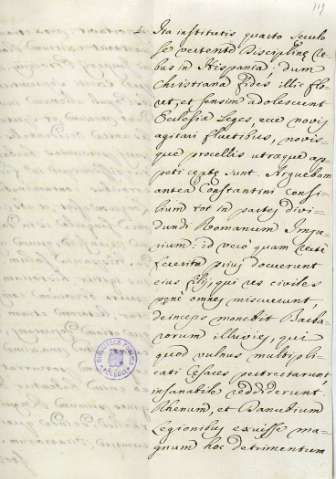 119
Ita institutis quarto seculo
se vertente Disciplinę
bus in Hispania: dum
Christiana fides illic flo
ret, et sensim adolescunt
Ecclesię Leges, ecce novis
agitari fluctibus, novis-
que procellis utraque ap
peti cęptę sunt. Arguebam
antea Constantini consi
lium tot in partes divi
dundi Romanum Impe
rium: id vero quam
fecerit prius docuerunt
eius qui res civiles
pęne omnes miscuerunt,
deinceps monebit Barba
rorum illuvies, qui
quod vulnus multipli
cati Cęsares
insanabile reddiderunt.
Rhenum, et Danubium
Legionibus exuisse ma
gnum hoc detrimentum